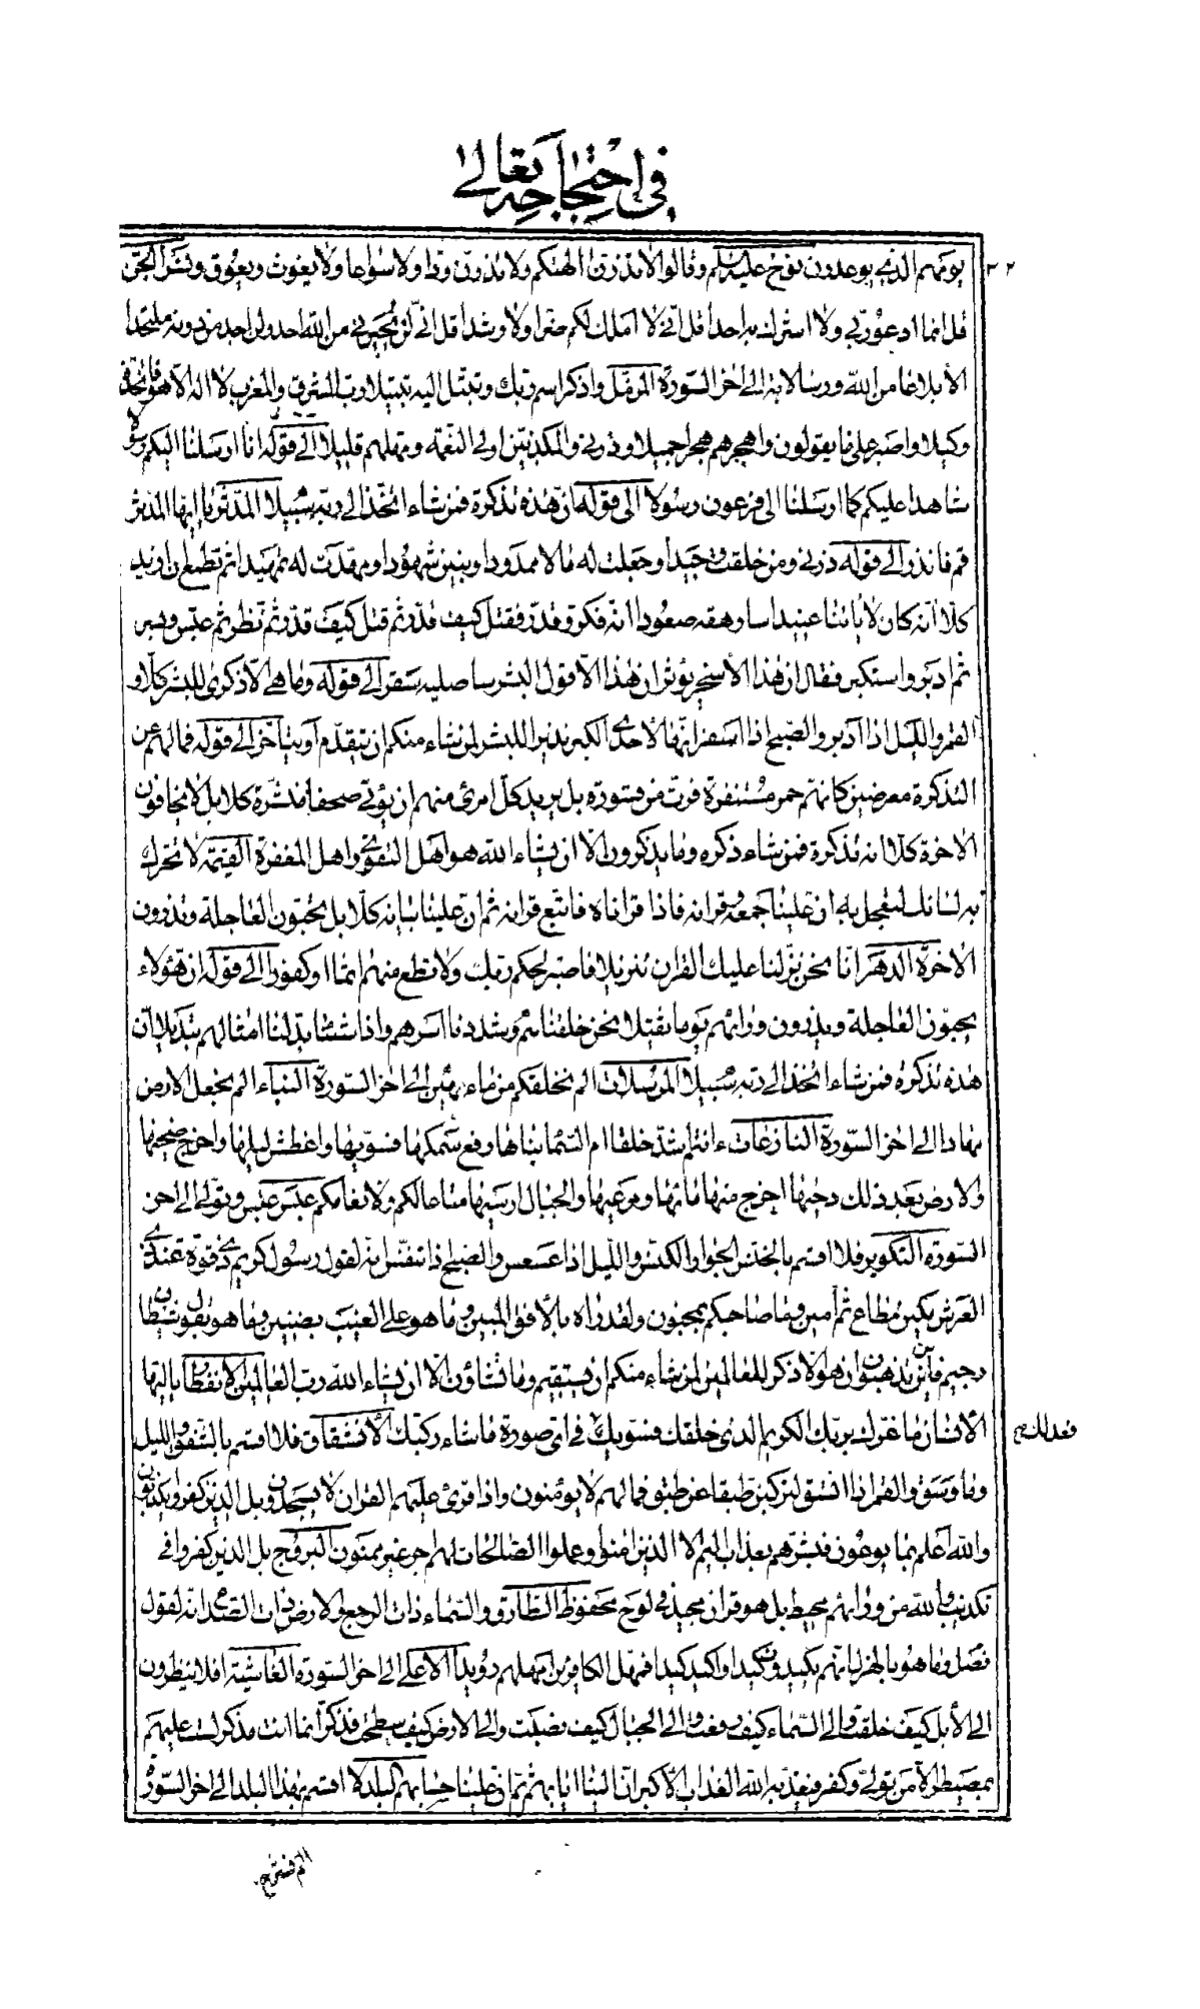 في احتجاجه تعالى
٢٢
يومهم الذي يوعدون نوح عليه السلم وقالوا لا تذرن الهتكم ولا تذرن ودا ولا سواعا ولا يغوث ويعوق ونسرا الجن
قل انما ادعو ربي ولا اشرك به احدا قل اني لا املك لكم ضرا ولا رشدا قل اني لن يجيرني من الله احد ولن اجد من دونه ملتحدا
الا بلاغا من الله ورسالاته الى اخر السورة المزمل واذكر اسم ربك وتبتل اليه تبتيلا رب المشرق والمغرب لا اله الا هو فاتخذه
وكيلا واصبر على ما يقولون واهجرهم هجرا جميلا وذرني والمكذبين اولي النعمة ومهلهم قليلا الى قوله انا ارسلنا اليكم رسولا
شاهدا عليكم كما ارسلنا الى فرعون رسولا الى قوله ان هذه تذكرة فمن شاء اتخذ الى ربه سبيلا المدثر يا ايها المدثر
قم فانذر الى قوله ذرني ومن خلقت وحيدا وجعلت له مالا ممدودا وبنين شهودا ومهدت له تمهيدا ثم يطمع ان ازيد
كلا انه كان لاياتنا عنيدا سارهقه صعودا انه فكر وقدر فقتل كيف قدر ثم قتل كيف قدر ثم نظر ثم عبس وبسر
ثم ادبر واستكبر فقال ان هذا الا سحر يؤثر ان هذا الا قول البشر ساصليه سقر الى قوله وما هي الا ذكرى للبشر كلا و
القمر والليل اذا ادبر والصبح اذا اسفر انها لاحدى الكبر نذيرا للبشر لمن شاء منكم ان يتقدم او يتاخر الى قوله فما لهم عن
التذكرة معرضين كانهم حمر مستنفرة فرت من قسورة بل يريد كل امرئ منهم ان يؤتى صحفا منشرة كلا بل لا يخافون
الاخرة كلا انه تذكرة فمن شاء ذكره وما يذكرون الا ان يشاء الله هو اهل التقوى واهل المغفرة القيمة لا تحرك
به لسانك لتعجل به ان علينا جمعه وقرانه فاذا قراناه فاتبع قرانه ثم ان علينا بيانه كلا بل تحبون العاجلة وتذرون
الاخرة الدهر انا نحن نزلنا عليك القران تنزيلا فاصبر لحكم ربك ولا تطع منهم اثما او كفورا الى قوله ان هؤلاء
يحبون العاجلة ويذرون ورائهم يوما ثقيلا نحن خلقناهم وشددنا اسرهم واذا شئنا بدلنا امثالهم تبديلا ان
هذه تذكرة فمن شاء اتخذ الى ربه سبيلا المرسلات الم نخلقكم من ماء مهين الى اخر السورة النباء الم نجعل الارض
مهادا الى اخر السورة النازعات ءانتم اشد خلقا ام السماء بناها رفع سمكها فسويها واغطش ليلها واخرج ضحيها
والارض بعد ذلك دحيها اخرج منها مائها ومرعيها والجبال ارسيها متاعا لكم ولانعامكم عبس عبس وتولى الى اخر
السورة التكوير فلا اقسم بالخنس الجوار الكنس والليل اذا عسعس والصبح اذا تنفس انه لقول رسول كريم ذي قوة عند ذي
العرش مكين مطاع ثم امين وما صاحبكم بمجنون ولقد راه بالافق المبين وما هو على الغيب بضنين وما هو بقول شيطان
رجيم فاين تذهبون ان هو الا ذكر للعالمين لمن شاء منكم ان يستقيم وما تشاؤن الا ان يشاء الله رب العالمين الانفطار يا ايها
الانسان ما غرك بربك الكريم الذي خلقك فسويك في اي صورة ما شاء ركبك الانشقاق فلا اقسم بالشفق والليل
فعدلك صح
وما وسق والقمر اذا اتسق لتركبن طبقا عن طبق فما لهم لا يؤمنون واذا قرئ عليهم القران لا يسجدون بل الذين كفروا يكذبون
والله اعلم بما يوعون فبشرهم بعذاب اليم الا الذين امنوا وعملوا الصالحات لهم اجر غير ممنون البروج بل الذين كفروا في
تكذيب والله من ورائهم محيط بل هو قران مجيد في لوح محفوظ الطارق والسماء ذات الرجع والارض ذات الصدع انه لقول
فصل وما هو بالهزل انهم يكيدون كيدا واكيد كيدا فمهل الكافرين امهلهم رويدا الاعلى الى اخر السورة الغاشية افلا ينظرون
الى الابل كيف خلقت والى السماء كيف رفعت والى الجبال كيف نصبت والى الارض كيف سطحت فذكر انما انت مذكر لست عليهم
بمصيطر الا من تولى وكفر فيعذبه الله العذاب الاكبر ان الينا ايابهم ثم ان علينا حسابهم البلد لا اقسم بهذا البلد الى اخر السورة
الم نشرح